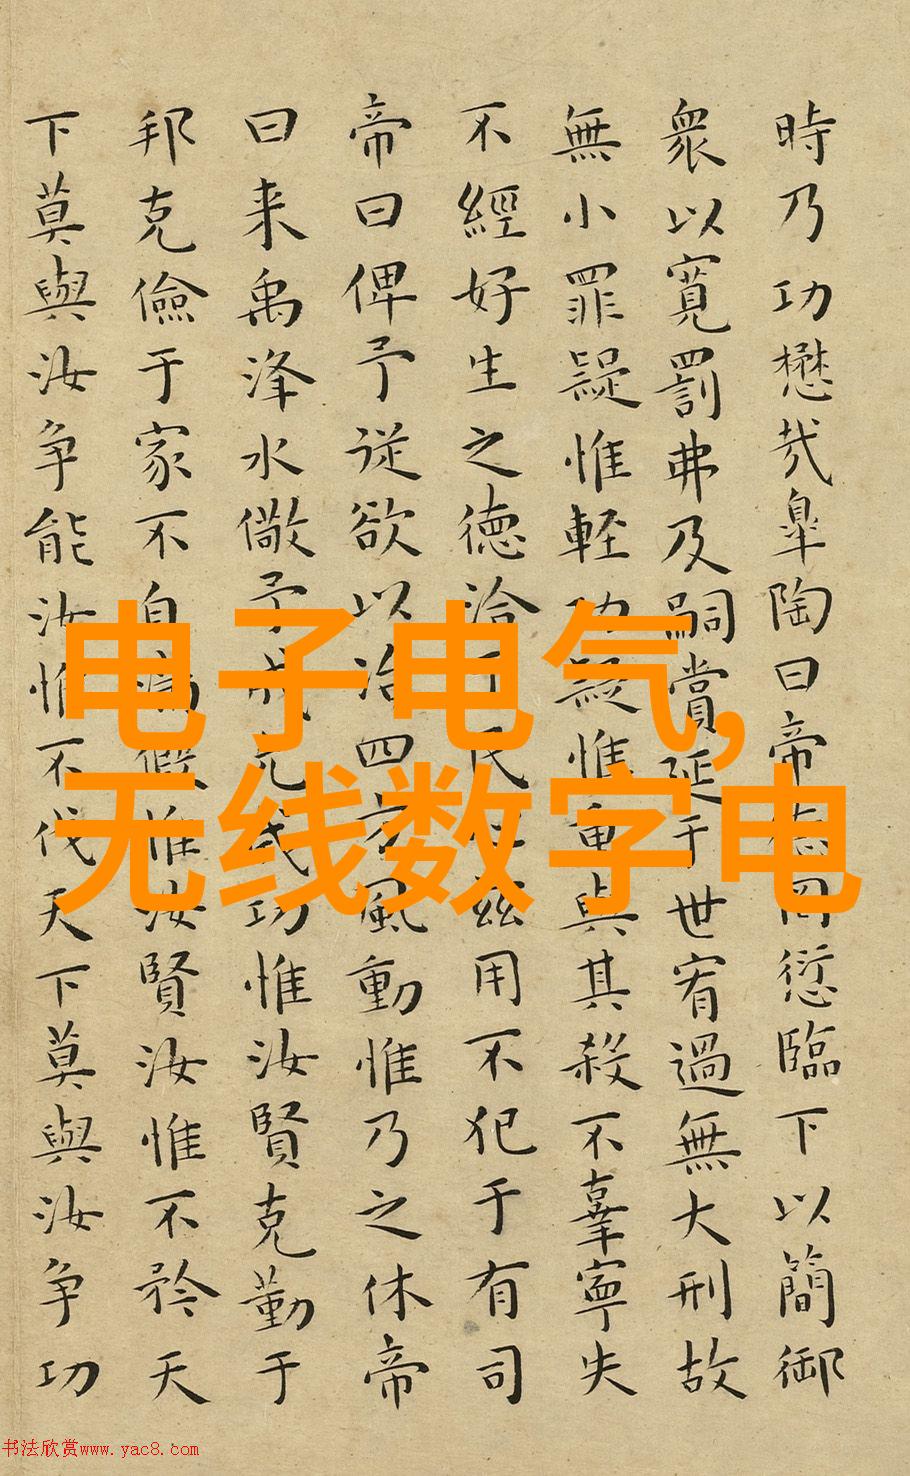 時乃功懋哉皐陶曰帝德罔愆臨下以簡御
衆以寬罰弗及嗣賞延于世宥過無大刑故
無小罪疑惟軽功疑惟重與其殺不辜寧失
不經好生之徳洽于民心茲用不犯于有司
帝曰俾予従欲以治四方風動惟乃之休帝
曰来禹洚水儆予成允成功惟汝賢克勤于
邦克儉于家不自滿假惟汝賢汝惟不矜天
下莫與汝争能汝惟不伐天下莫與汝争功
电子电气,
无线数字电
书法欣赏www.yac8.com